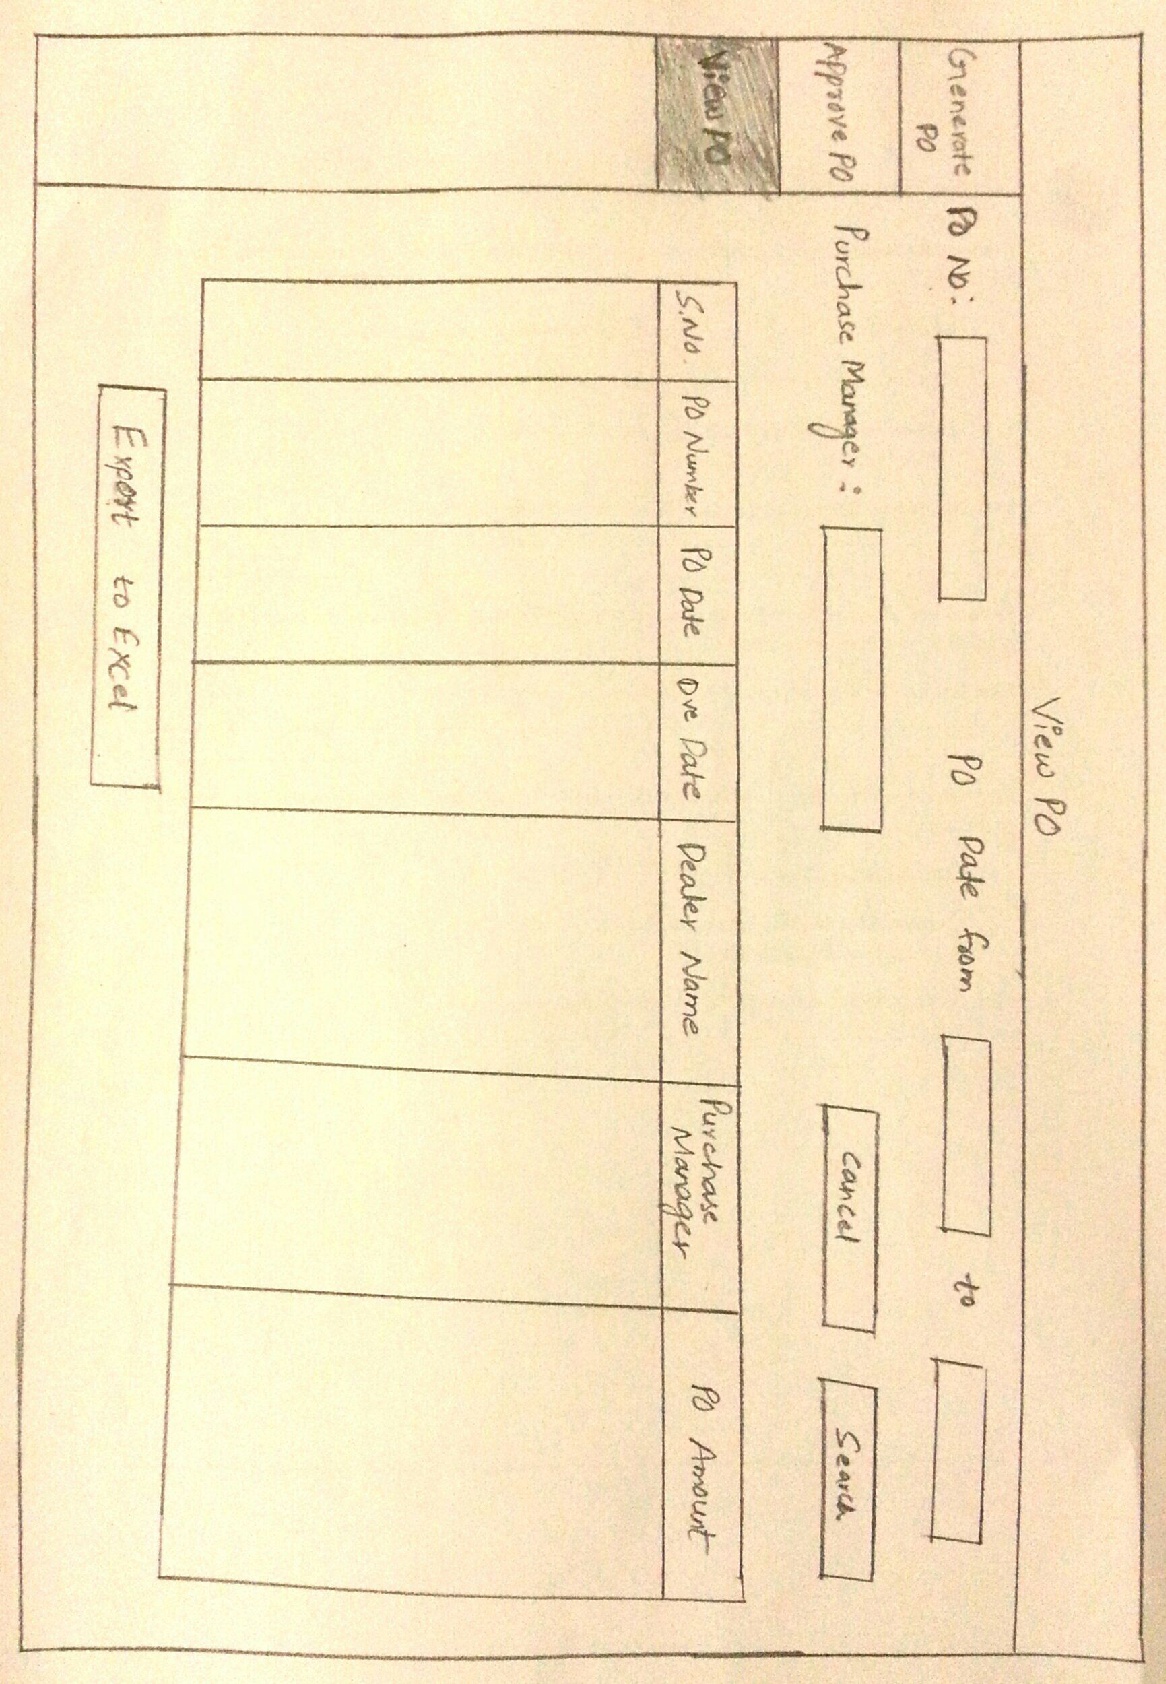 View PO
Generate
PO
Approve PO
View PO
PO No:
PO Date from
to
Purchase Manager:
Cancel
Search
S.No.
PO Number
PO Date
Due Date
Dealer Name
Purchase
Manager
PO Amount
Export to Excel